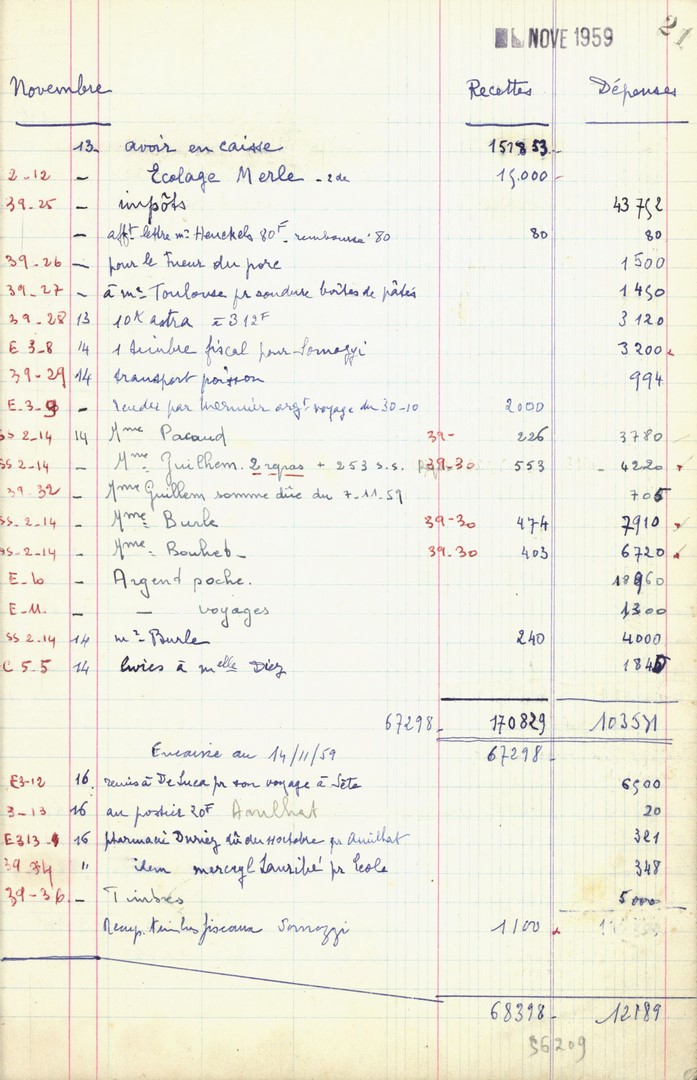 NOVE 1959
21
Novembre Recettes Dépenses
13 avoir en caisse 151853
2-12 - Ecolage Merle - 2de 15.000 -
39-25 - impôts 43752
- afft lettre me Henckels 80F - remboursé 80 80 80
39-26 - pour le Tueur du porc 1500
39-27 - à me Toulouse pr soudure boîtes de pâtés 1450
39-28 13 10K astra à 312F 3120
E 3-8 14 1 timbre fiscal pour Somozzi 3200
39-29 14 transport poisson 994
E-3-9 - par argt voyage du 30-10 2000
SS 2-14 14 Mme Pacaud 39- 226 3780
SS 2-14 - Mme Guilhem. 2 repas + 253 s.s. 39-30 553 - 4220
39-32 Mme Guilhem somme dûe du 7-11-59 705
SS-2-14 - Mme Burle 39-30 474 7910
SS-2-14 - Mme Bouhet 39.30 403 6720
E-10 - Argent poche. 18960
E-11. - — voyages 1300
SS 2-14 14 me Burle 240 4000
C 5-5 14 livres à melle Diez 1845
67298 170829 103531
Encaisse au 14/11/59 67298
E3-12 16 remis à De Luca pr son voyage à Sète 6500
3-13 16 au postier 20F Anilhat 20
E313 16 pharmacie Duriez dû du octobre pr Anilhat 321
39 34 " idem pr Ecole 348
39-36 - Timbres 5000
Récup. timbres fiscaux Somozzi 1100
68398 12189
56209